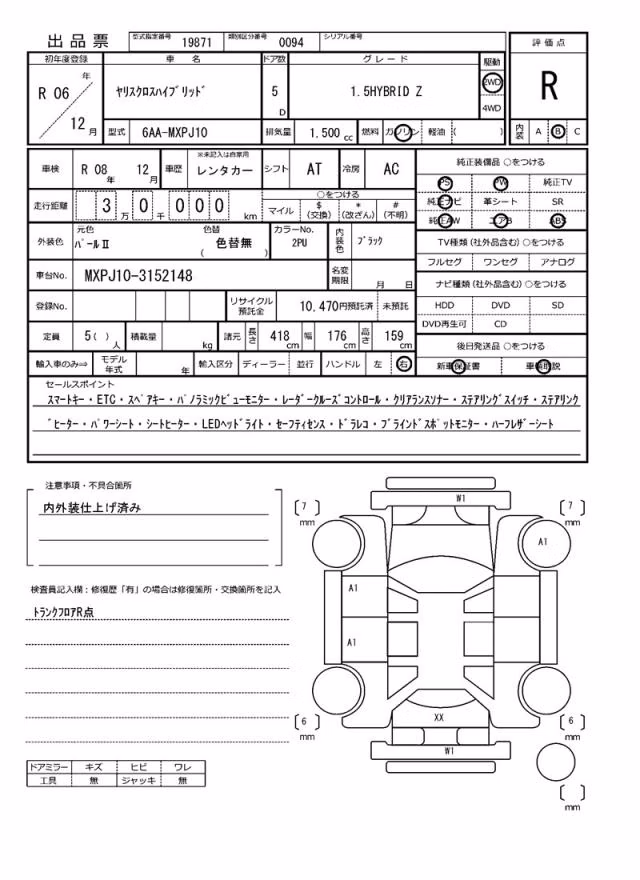 出品票 型式指定番号 19871 類別区分番号 0094 シリアル番号
評価点
R
内装 A B C
初年度登録 車名 ドア数 グレード 駆動
R 06 年 12 月 ヤリスクロスハイブリッド 5 D 1.5HYBRID Z 2WD 4WD
型式 6AA-MXPJ10 排気量 1.500 cc 燃料 ガソリン 軽油 ( )
車検 R 08 年 12 月 車歴 ※未記入は自家用 レンタカー シフト AT 冷房 AC
走行距離 3 万 0 千 0 0 0 km ○をつける マイル $ (交換) * (改ざん) # (不明)
外装色 元色 パールⅡ 色替 ( 色替無 ) カラーNo. 2PU 内装色 ブラック
車台No. MXPJ10-3152148 名変期限 月 日
登録No. リサイクル預託金 10.470円預託済 未預託
定員 5( ) 人 積載量 kg 諸元 長さ 418 cm 幅 176 cm 高さ 159 cm
輸入車のみ⇒ モデル年式 年 輸入区分 ディーラー 並行 ハンドル 左 右
純正装備品 ○をつける
PS PW 純正TV
純正ナビ 革シート SR
純正AW エアB ABS
TV種類 (社外品含む) ○をつける
フルセグ ワンセグ アナログ
ナビ種類 (社外品含む) ○をつける
HDD DVD SD
DVD再生可 CD
後日発送品 ○をつける
新車保証書 車輌取説
セールスポイント
スマートキー・ETC・スペアキー・パノラミックビューモニター・レーダークルーズコントロール・クリアランスソナー・ステアリングスイッチ・ステアリング
ヒーター・パワーシート・シートヒーター・LEDヘッドライト・セーフティセンス・ドラレコ・ブラインドスポットモニター・ハーフレザーシート
注意事項・不具合箇所
内外装仕上げ済み
検査員記入欄：修復歴「有」の場合は修復箇所・交換箇所を記入
トランクフロアR点
ドアミラー キズ ヒビ ワレ
工具 無 ジャッキ 無
W1
[ 7 ] mm
[ 7 ] mm
A1
A1
A1
XX
[ 6 ] mm
[ 6 ] mm
W1
[ ] mm